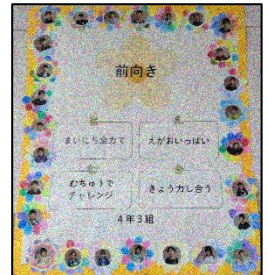 前向き
まいにち全力で
えがおいっぱい
むちゅうで
チャレンジ
きょう力し合う
4年3組